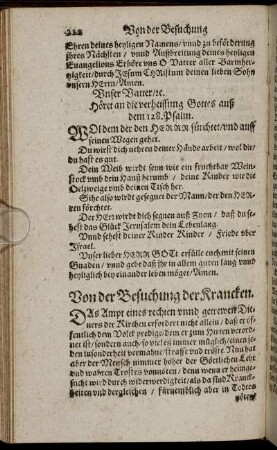 222 Von der Besuchung
Ehren deines heyligen Namens/ vnnd zu beförderung
jhres Nächsten / vnnd Außbreitung deines heyligen
Euangelions Erhöre vns O Vatter aller Barmher-
tzigkeit/durch JEsum CHRistum deinen lieben Sohn
vnsern HErrn/Amen.
Vnser Vatter/ec.
Höret an die verheissung Gottes auß
dem 128. Psalm.
WOl dem der den HERRN fürchtet/vnd auff
seinen Wegen gehet.
Du wirst dich nehren deiner Hände arbeit/ wol dir/
du hast es gut.
Dein Weib wirdt sein wie ein fruchtbar Wein-
stock vmb dein Hauß herumb / deine Kinder wie die
Oelzweige vmb deinen Tisch her.
Sihe also wirdt gesegnet der Mann/der den HER-
ren förchtet.
Der HErr wirdt dich segnen auß Zyon / daß du se-
hest das Glück Jerusalem dein Lebenlang.
Vnnd sehest deiner Kinder Kinder / Friede vber
Jsrael.
Vnser lieber HERR GOTT erfülle euch mit seinen
Gnaden/ vnnd gebe daß jhr in allem guten lang vnnd
heyliglich bey einander leben möget/Amen.
Von der Besuchung der Krancken.
DAs Ampt eines rechten vnnd getrewen Die-
ners der Kirchen erfordert nicht allein / daß er öf-
fentlich dem Volck predige/dem er zum Hirten verord-
net ist/sondern auch/so viel es jmmer müglich/einen je-
den insonderheit vermahne/straffe vnd tröste Nun hat
aber der Mensch nimmer höher der Göttlichen Lehr
vnd wahren Trostes vonnöten / denn wenn er heimge-
sucht wird durch widerwerdigkeit/als da sind Kranck-
heiten vnd dergleichen / fürnemblich aber in Todes-
nöten/